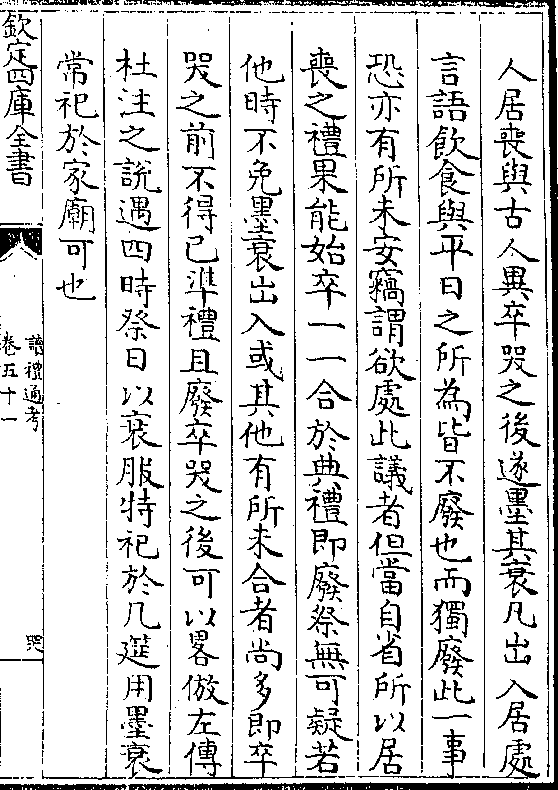 人居喪與古人異卒哭之後遂墨其衰凡出入居處
言語飲食與平日之所為皆不廢也而獨廢此一事
恐亦有所未安竊謂欲處此議者但當自省所以居
喪之禮果能始卒一一合於典禮即廢祭無可疑若
他時不免墨衰出入或其他有所未合者尚多即卒
哭之前不得已準禮且廢卒哭之後可以畧倣左傳
杜注之說遇四時祭日以衰服特祀於几筵用墨衰
常祀於家廟可也
欽定四庫全書
讀禮通考
卷五十一